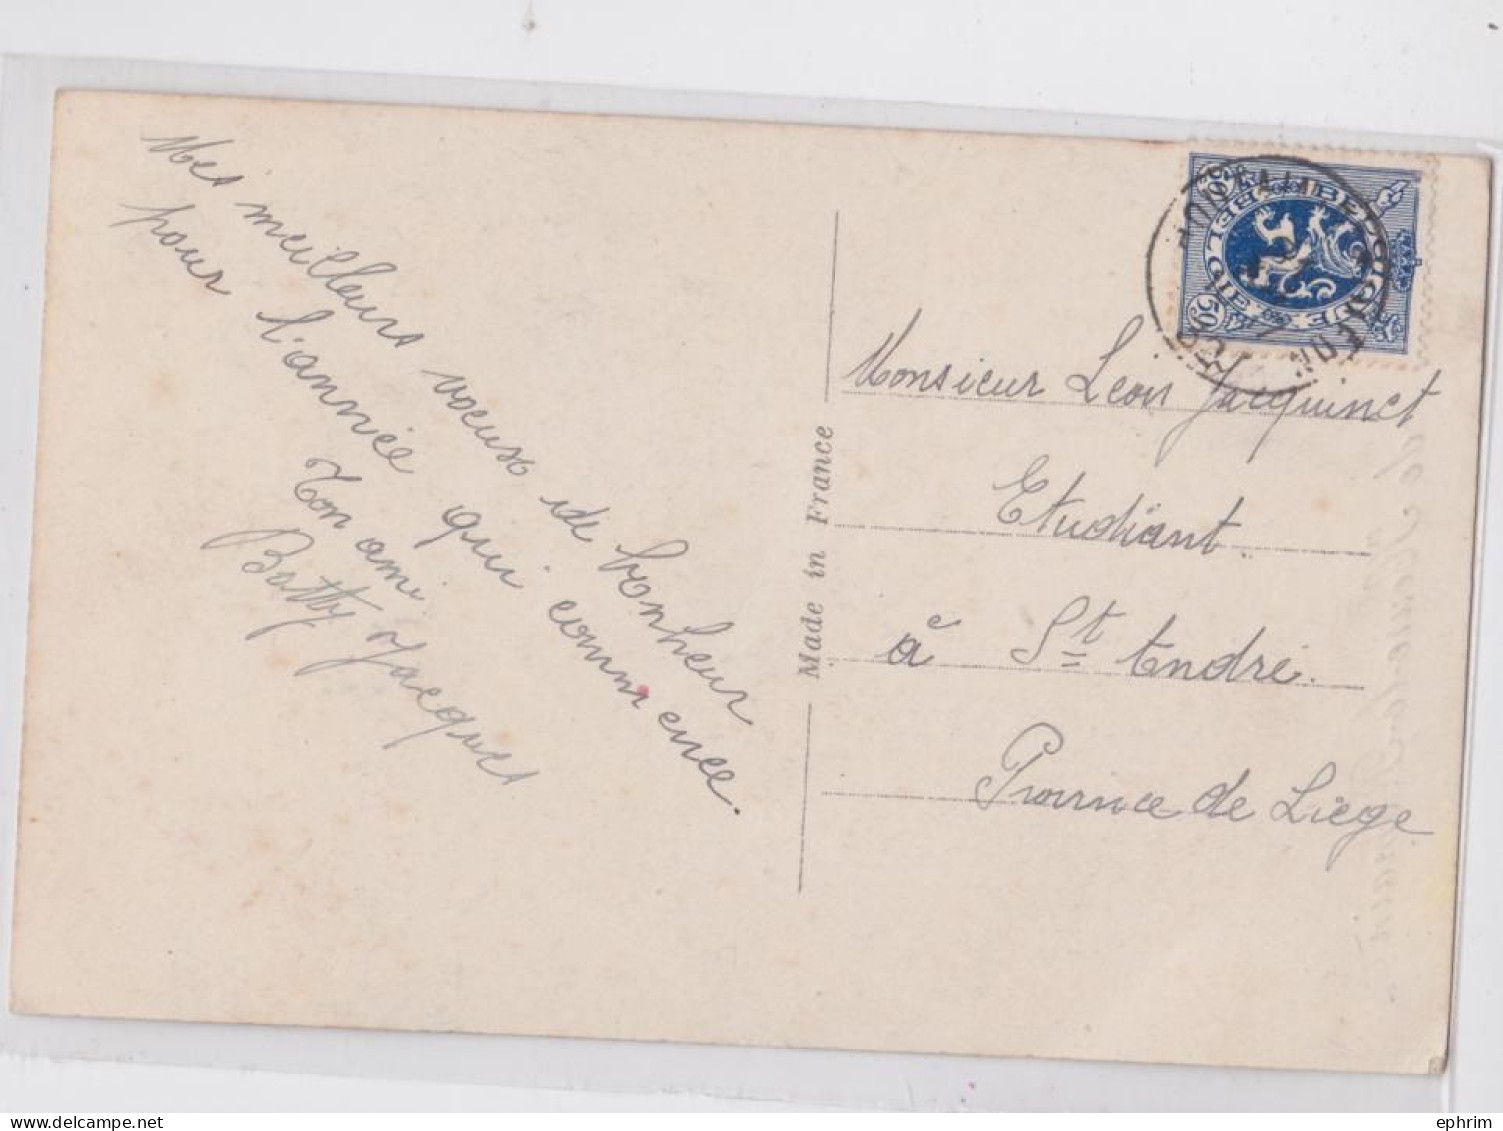 Mes meilleurs voeux de bonheur
pour l'année qui commence.
Ton ami
Batty Jacquet
Made in France
BELGIQUE BELGIË
50
50
Monsieur Léon Jacquinet
Etudiant.
à St André.
Province de Liège
ephrim